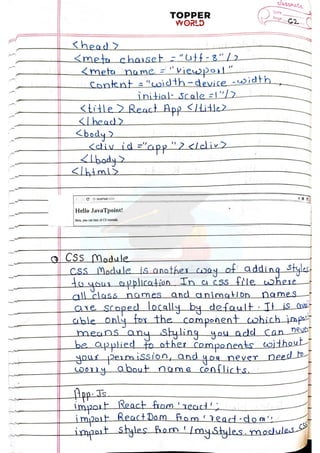 classmate
Date
Page 62
TOPPER
WORLD
<head>
<meta charset = "Utf-8" />
<meta name = "viewport"
content = "width-device-width,
initial-scale =1"/>
<title> React App </title>
</head>
<body>
<div id ="app"> </div>
</body>
</html>
Hello JavaTpoint!
CSS Module
CSS Module is another way of adding styles
to your application In a css file where
all class names and animation names
are scoped locally by default. It is
able only for the component which
means any styling you add can never
be applied to other components without
your permission, and you never need to
worry about name conflicts.
App.Js
import React from 'react';
import ReactDom from 'react-dom';
import styles from './mystyles.modules.